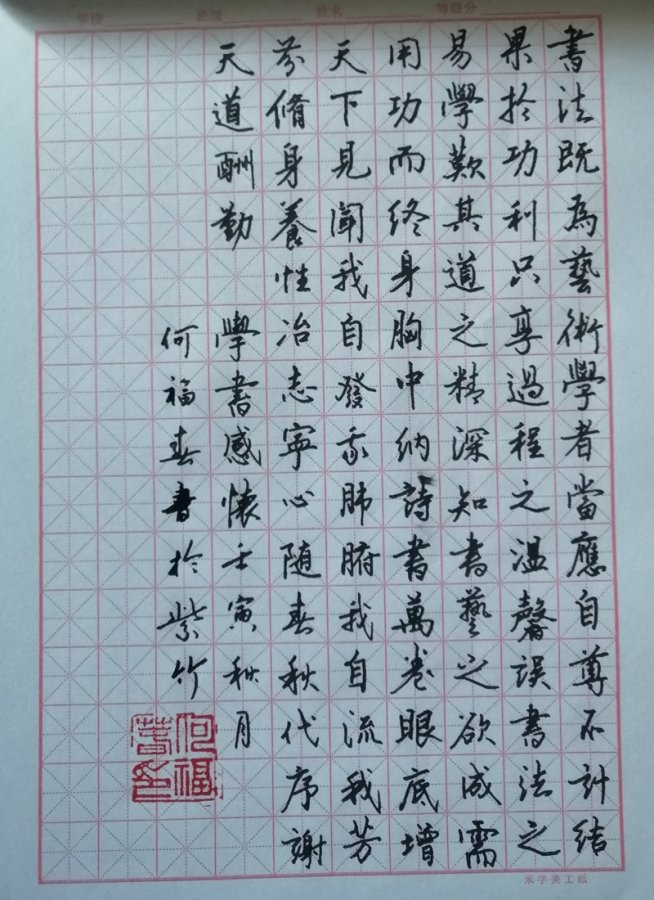 学校 班级 姓名 等级分
書法既為藝術學者當應自尊不計結
果於功利只享過程之溫馨误書法之
易學歎其道之精深知書藝之欲成需
用功而终身胸中納詩書萬卷眼底增
天下見闻我自發我肺腑我自流我芳
芬脩身養性冶志寧心随春秋代序謝
天道酬勤 學書感懷壬寅秋月
何福春書於紫竹
何福春印
米字美工纸